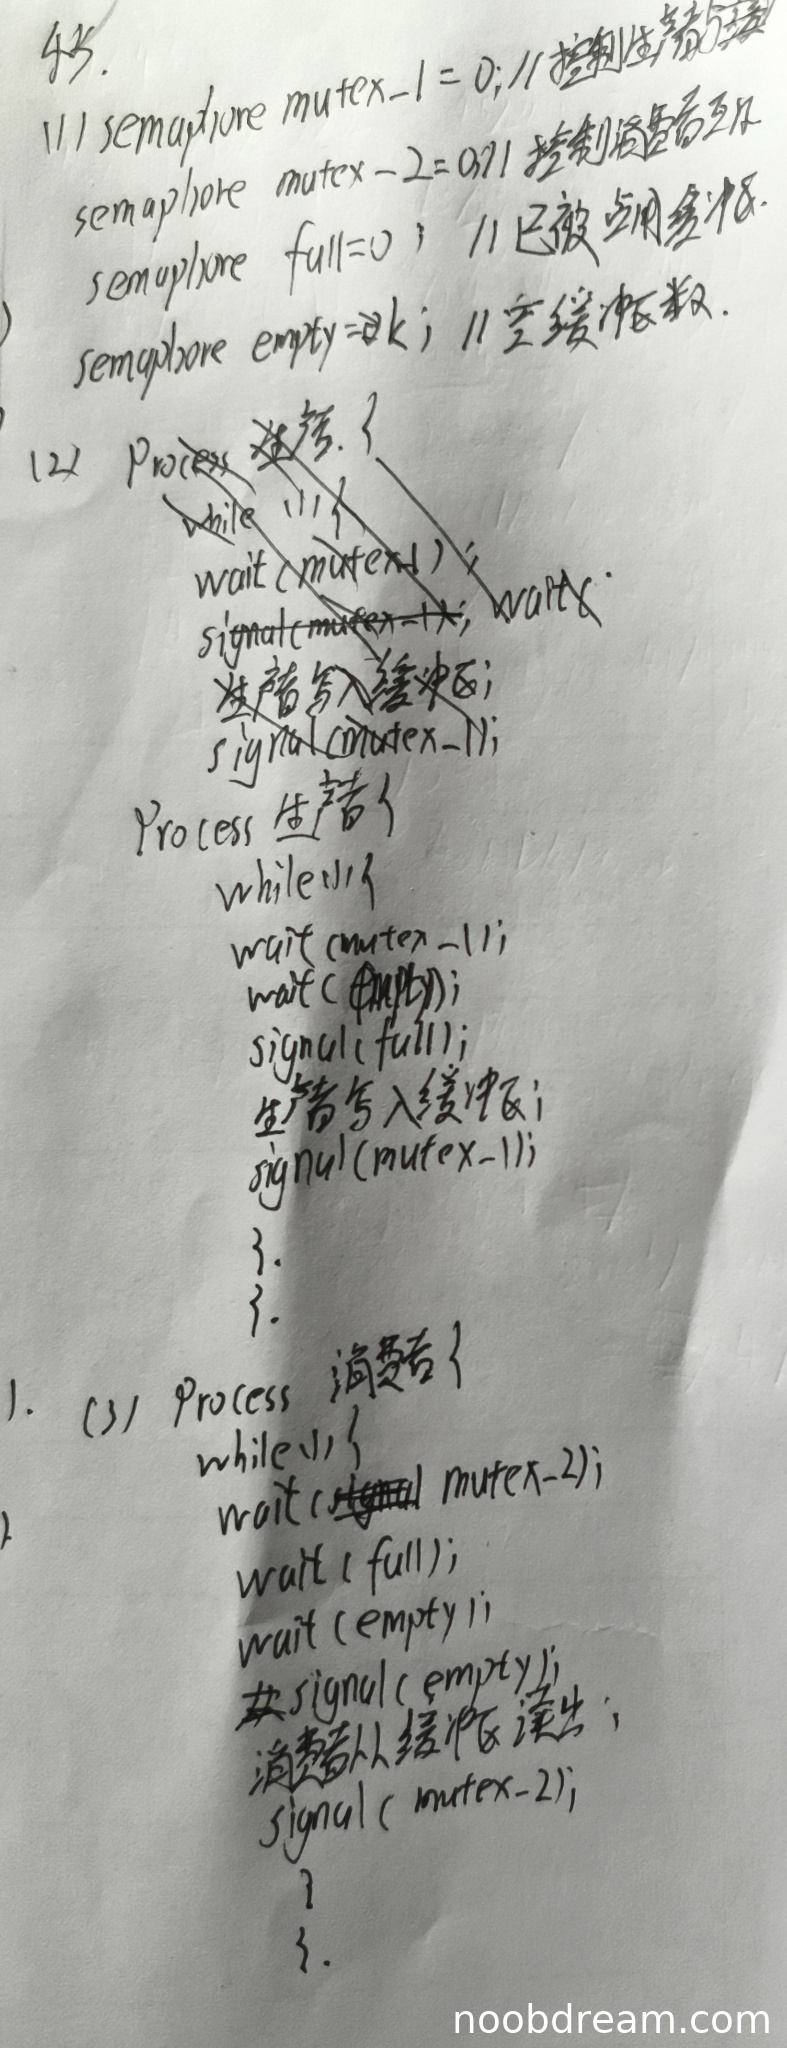 45.
(1) semaphore mutex-1 = 0; // 控制生产者互斥
semaphore mutex-2 = 0; // 控制消费者互斥
semaphore full=0; // 已被占用缓冲区.
semaphore empty=k; // 空缓冲区数.
(2) Process 生产者{
while (1) {
wait (mutex-1);
signal(mutex-1); wait(
生产者写入缓冲区;
signal(mutex-1);
Process 生产者{
while(1){
wait(mutex-1);
wait(empty);
signal(full);
生产者写入缓冲区;
signal(mutex-1);
}.
}.
1. (3) Process 消费者{
while(1){
wait(mutex-2);
wait(full);
wait(empty);
signal(empty);
消费者从缓冲区读出;
signal(mutex-2);
}
}.
noobdream.com